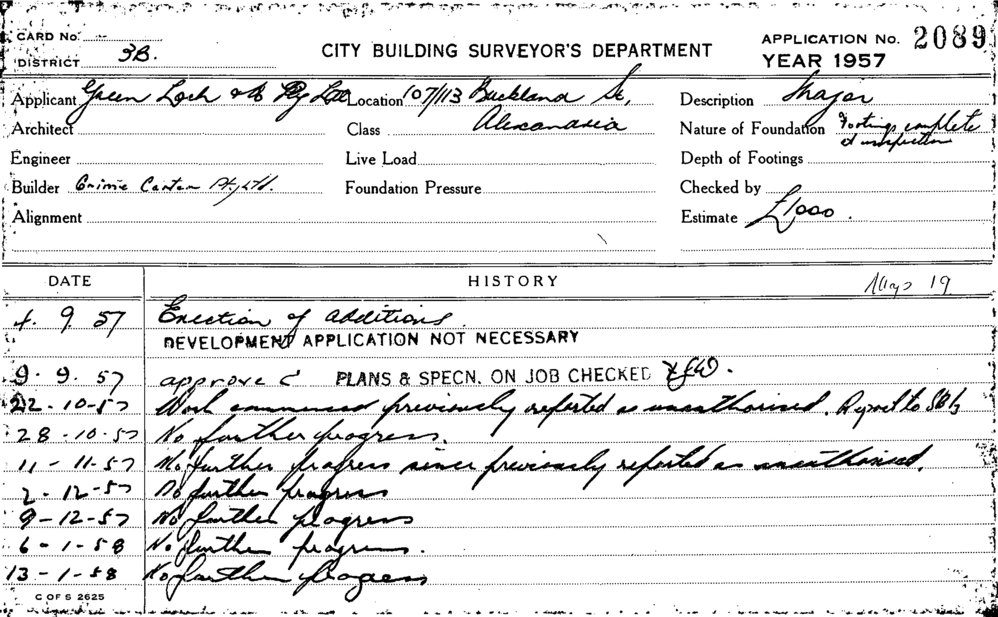 CARD No.
DISTRICT 3B.
CITY BUILDING SURVEYOR'S DEPARTMENT
APPLICATION No. 2089
YEAR 1957
Applicant Green Location 107/113 Buckland St,
Alexandria
Description
Architect
Class
Nature of Foundation Footings complete
Engineer
Live Load
Depth of Footings
Builder Grimie Carter Pty Ltd.
Foundation Pressure
Checked by
Alignment
Estimate £1000.
DATE
HISTORY
19
4. 9. 57 Erection of additions.
DEVELOPMENT APPLICATION NOT NECESSARY
9. 9. 57 approved PLANS & SPECN. ON JOB CHECKED
22-10-57 Work commenced previously reported as unauthorised. Report to
28-10-57 No further progress.
11-11-57 No further progress since previously reported as unauthorised.
2-12-57 No further progress
9-12-57 No further progress
6-1-58 No further progress.
13-1-58 No further progress
C OF S 2625